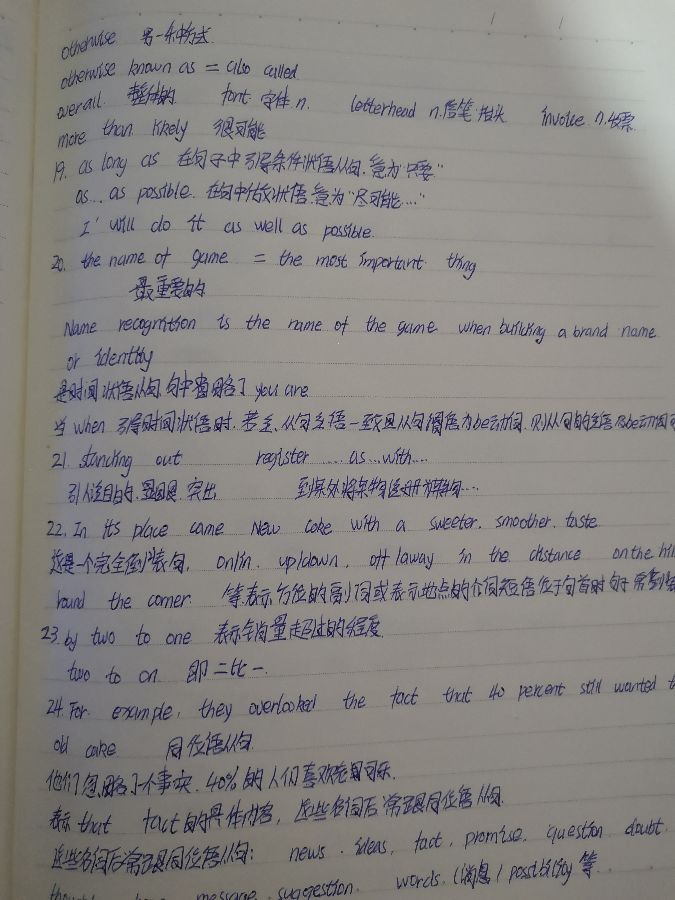 otherwise 另一种方式
otherwise known as = also called
overall 整体的 font 字体 n. letterhead n.信笺抬头 invoice n.发票
more than likely 很可能
19. as long as 在句子中引导条件状语从句.意为"只要"
as... as possible. 在句中作状语.意为"尽可能...."
I' will do it as well as possible.
20. the name of game = the most important thing
最重要的
Name recognition is the name of the game when building a brand name
or identity
是时间状语从句.句中省略了 you are
当 when 引导时间状语时.若主.从句主语一致且从句谓语为be动词.则从句的主语及be动词可
21. standing out register .... as ... with....
引人注目的.显眼的 突出 到某处将某物注册为
22. In its place came New coke with a sweeter. smoother. taste
这是一个完全倒装句. on/in. up/down. off /away in the distance on the hill
round the corner. 等表示方位的副词或表示地点的介词短语位于句首时句子常倒装
23. by two to one 表示销量超过的程度.
two to on 即二比一.
24. For example, they overlooked the fact that 40 percent still wanted t
old coke 同位语从句.
他们忽略了个事实. 40%的人们喜欢老可乐.
表示 that fact的具体内容, 这些名词后常跟同位语从句.
这些名词后常跟同位语从句: news . ideas. fact. promise. question doubt.
message. suggestion. words. (消息) possibility 等